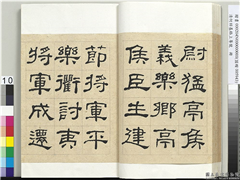 尉猛亭侯
義樂鄉亭
侯臣生建
節將軍平
樂衢討夷
將軍成遷
10